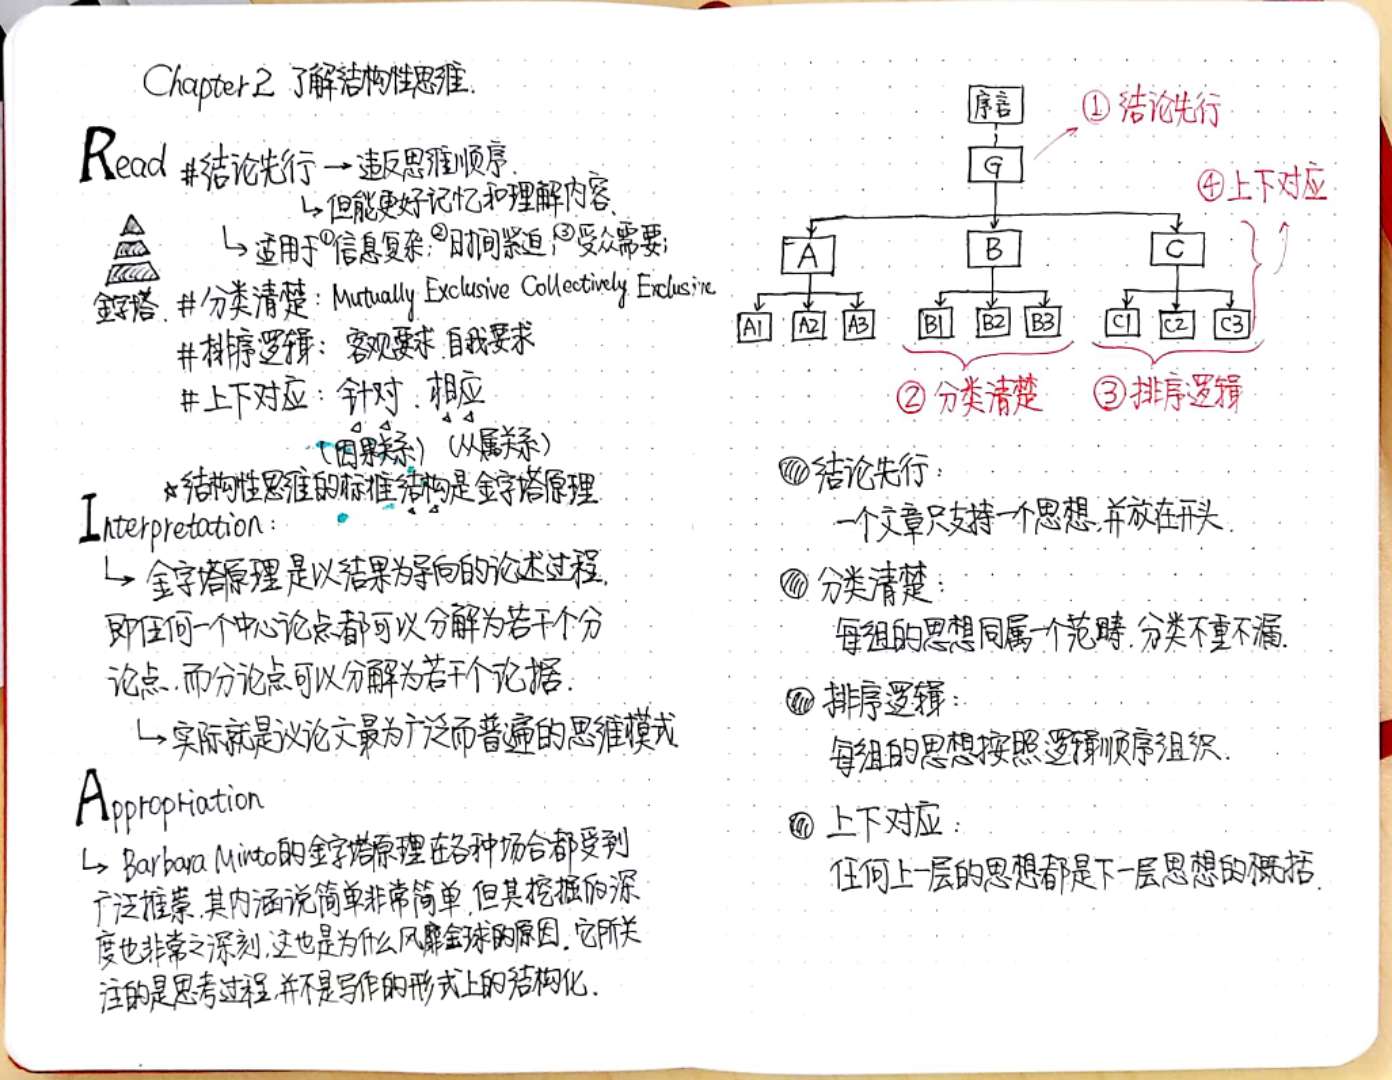 Chapter2 了解结构性思维.
Read #结论先行 → 违反思维顺序.
↳但能更好记忆和理解内容.
↳ 适用于①信息复杂;②时间紧迫;③受众需要;
金字塔.
#分类清楚: Mutually Exclusive Collectively Exclusive
#排序逻辑: 客观要求.自我要求
#上下对应: 针对 . 相应
(因果关系) (从属关系)
☆结构性思维的标准结构是金字塔原理
Interpretation:
↳ 金字塔原理是以结果为导向的论述过程.
即任何一个中心论点都可以分解为若干个分
论点.而分论点可以分解为若干个论据.
↳实际就是议论文最为广泛而普遍的思维模式
Appropriation
↳ Barbara Minto的金字塔原理在各种场合都受到
广泛推崇.其内涵说简单非常简单,但其挖掘的深
度也非常之深刻.这也是为什么风靡全球的原因.它所关
注的是思考过程,并不是写作的形式上的结构化.
序言
① 结论先行
G
④上下对应
A B C
A1 A2 A3 B1 B2 B3 C1 C2 C3
② 分类清楚 ③排序逻辑
结论先行:
一个文章只支持一个思想,并放在开头.
分类清楚:
每组的思想同属一个范畴.分类不重不漏.
排序逻辑:
每组的思想按照逻辑顺序组织.
上下对应:
任何上一层的思想都是下一层思想的概括.